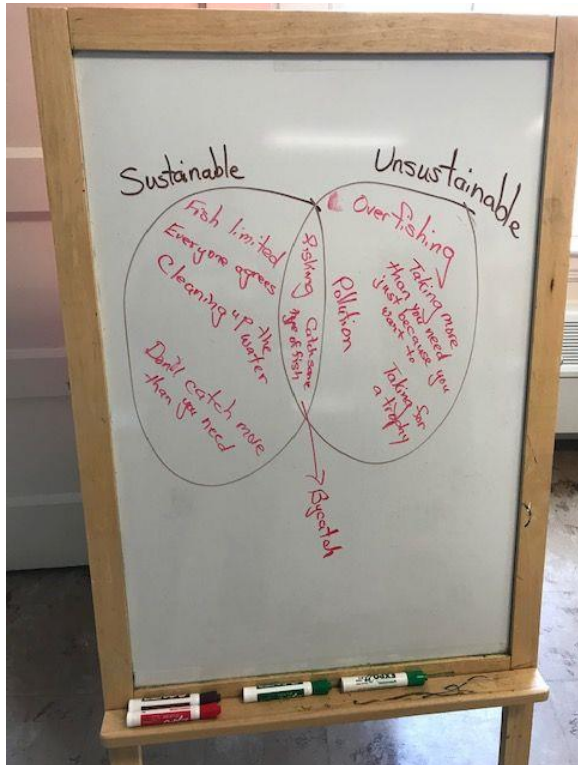 Sustainable
Unsustainable
Fish limited
Everyone agrees
Cleaning up the
water
Don't catch more
than you need
Fishing
Catch same
type of fish
Overfishing
Taking more
than you need
just because you
want to
Taking for
a trophy
Pollution
Bycatch
EXPO